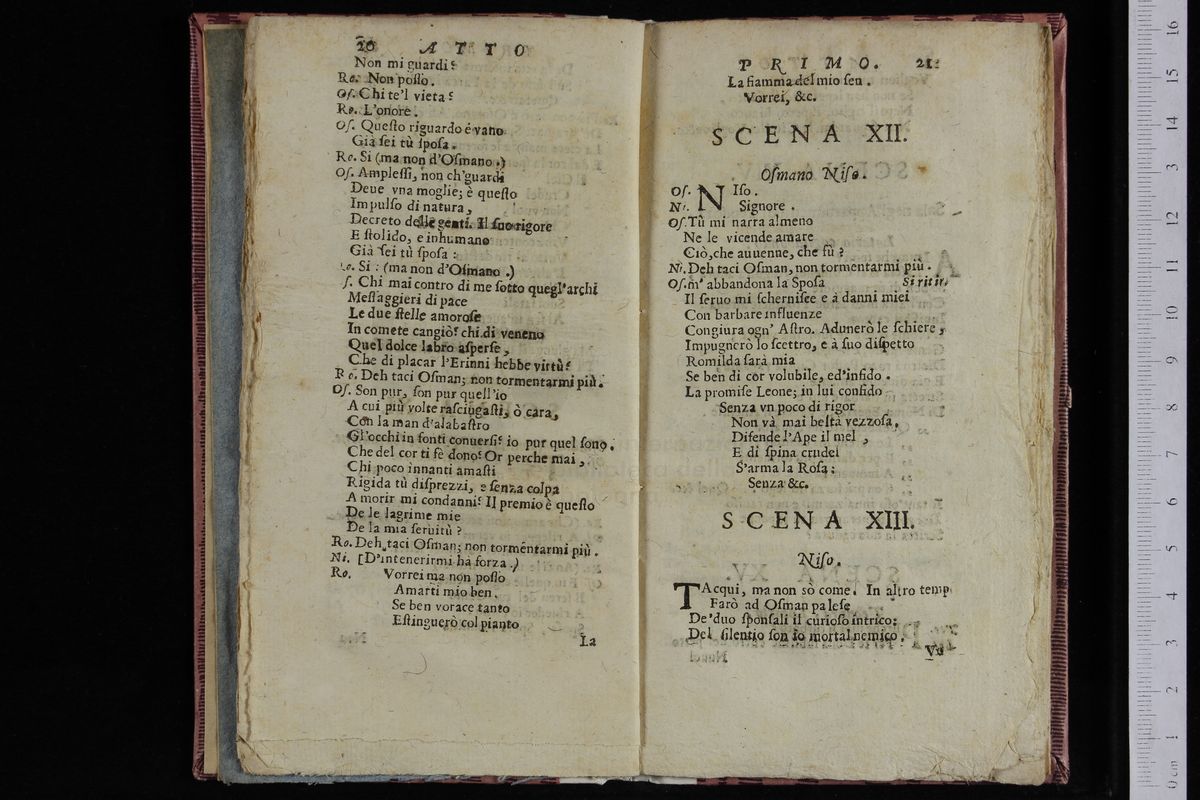 20 ATTO
Non mi guardi?
Ro. Non poſſo.
Oſ. Chi te'l vieta?
Ro. L'onore.
Oſ. Queſto riguardo è vano
Già ſei tù ſpoſa.
Ro. Si (ma non d'Oſmano.)
Oſ. Ampleſſi, non ch'guardi
Deue vna moglie; è queſto
Impulſo di natura,
Decreto delle genti. Il ſuo rigore
E ſtolido, e inhumano
Già ſei tù ſpoſa:
Si: (ma non d'Oſmano.)
ſ. Chi mai contro di me ſotto quegl'archi
Meſſaggieri di pace
Le due ſtelle amoroſe
In comete cangiò? chi di veneno
Quel dolce labro aſperſe,
Che di placar l'Erinni hebbe virtù?
Ro. Deh taci Oſman; non tormentarmi più.
Oſ. Son pur, ſon pur quell'io
A cui più volte raſciugaſti, ò cara,
Con la man d'alabaſtro
Gl'occhi in fonti conuerſi? io pur quel ſono,
Che del cor ti fè dono? Or perche mai,
Chi poco innanti amaſti
Rigida tù diſprezzi, e ſenza colpa
A morir mi condanni? Il premio è queſto
De le lagrime mie
De la mia ſeruitù?
Ro. Deh taci Oſman; non tormentarmi più.
Ni. [D'intenerirmi hà forza.)
Ro. Vorrei ma non poſſo
Amarti mio ben.
Se ben vorace tanto
Eſtinguerò col pianto
La
PRIMO. 21
La fiamma del mio ſen.
Vorrei, &c.
SCENA XII.
Oſmano Niſo.
Oſ. NIſo.
Ni. Signore.
Oſ. Tù mi narra almeno
Ne le vicende amare
Ciò, che auuenne, che fù?
Ni. Deh taci Oſman, non tormentarmi più.
Oſ. m' abbandona la Spoſa Si ritir.
Il ſeruo mi ſcherniſce e à danni miei
Con barbare influenze
Congiura ogn' Aſtro. Adunerò le ſchiere,
Impugnerò lo ſcettro, e à ſuo diſpetto
Romilda ſarà mia
Se ben di cor volubile, ed'infido.
La promiſe Leone; in lui confido
Senza vn poco di rigor
Non và mai beltà vezzoſa,
Difende l'Ape il mel,
E di ſpina crudel
S'arma la Roſa:
Senza &c.
SCENA XIII.
Niſo.
TAcqui, ma non sò come. In altro temp
Farò ad Oſman paleſe
De'duo ſponſali il curioſo intrico:
Del ſilentio ſon io mortal nemico.